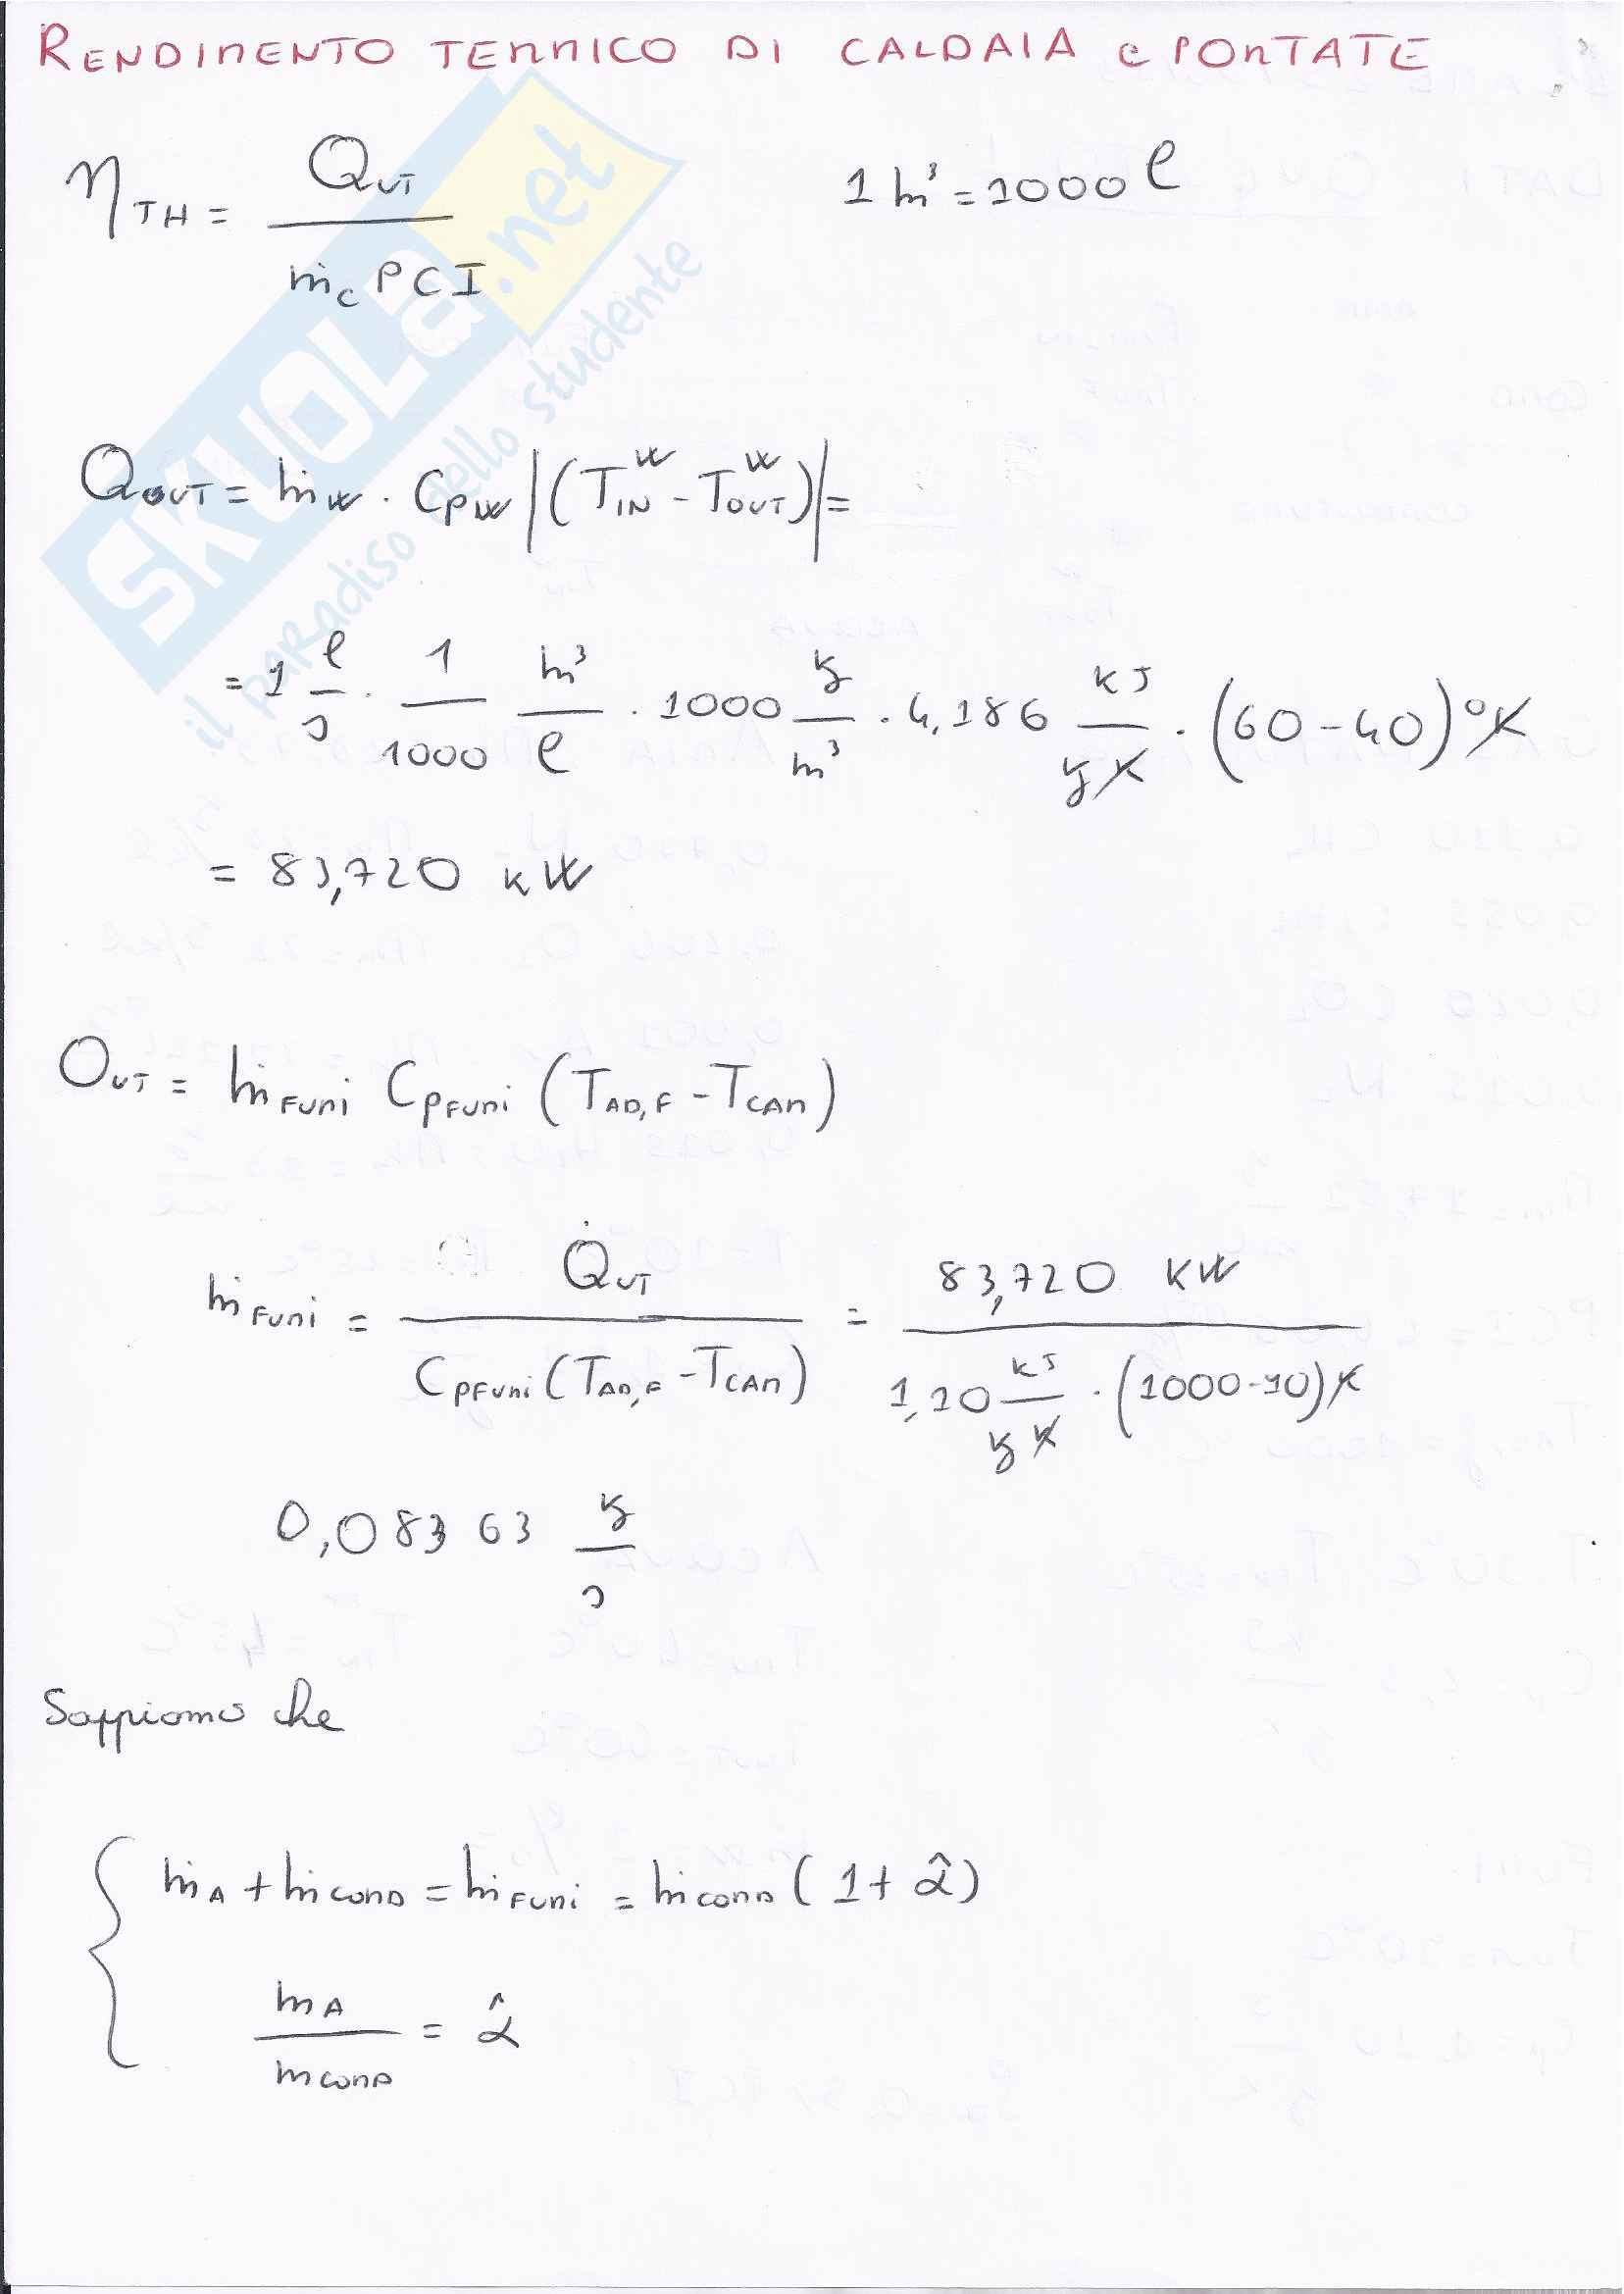 RENDIMENTO TERMICO DI CALDAIA e PORTATE
η_TH = Q_UT / (ṁ_C PCI)    1 m³ = 1000 l
SKUOLA.net
il paradiso dello studente
Q_OUT = ṁ_W · C_PW |(T_IN^W - T_OUT^W)| =
= 1 l/s · 1/1000 m³/l · 1000 kg/m³ · 4,186 kJ/kg K · (60-40) °K
= 83,720 kW
Q_UT = ṁ_FUMI C_PFUMI (T_AD,F - T_CAM)
ṁ_FUMI = Q̇_UT / (C_PFUMI (T_AD,F - T_CAM)) = 83,720 kW / (1,10 kJ/kg K · (1000-90) K)
0,08363 kg/s
Sappiamo che
ṁ_A + ṁ_COMB = ṁ_FUMI = ṁ_COMB (1 + α̂)
m_A / m_COMB = α̂